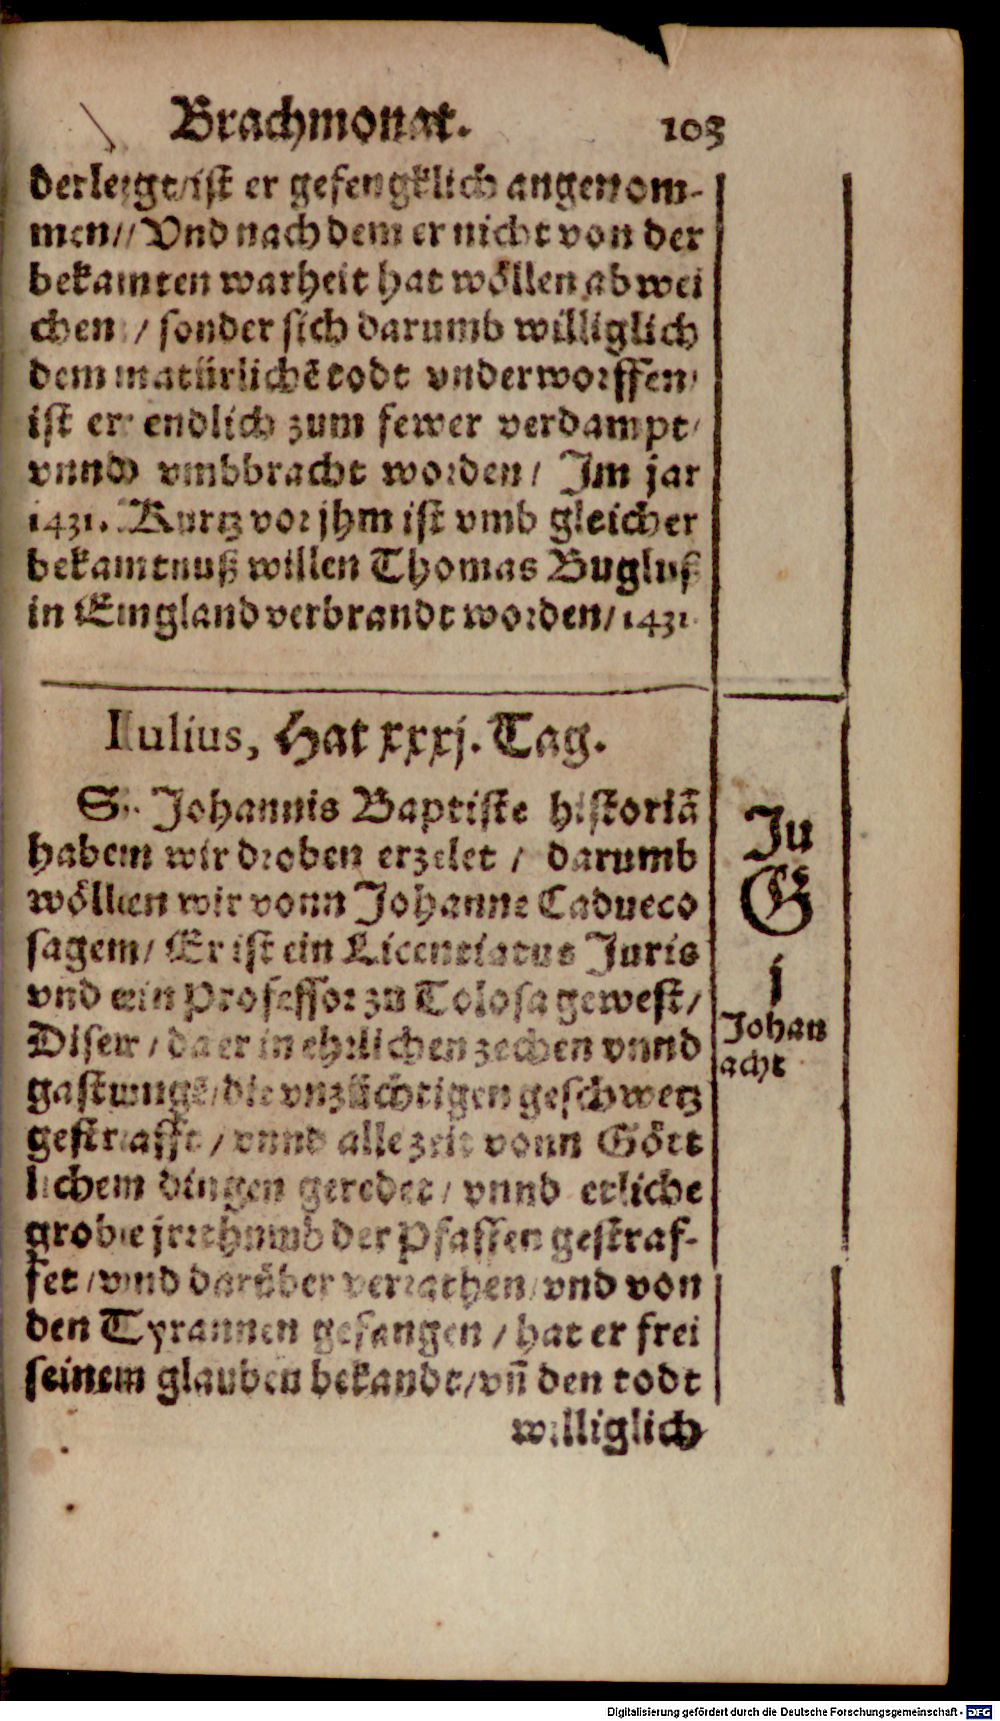 Brachmonat. 103
derlegt/ist er gefengklich angenom-
men// Vnd nach dem er nicht von der
bekanten warheit hat wöllen abwei
chen / sonder sich darumb williglich
dem natürlichē todt vnderworffen/
ist er endlich zum fewer verdampt/
vnnd vmbbracht worden / Im jar
1431. Kurtz vor jhm ist vmb gleicher
bekantnuß willen Thomas Bugluß
in England verbrandt worden/ 1431.
Iulius, Hat xxxj. Tag.
S. Johannis Baptiste historiā
haben wir droben erzelet / darumb
wöllen wir vonn Johanne Cadueco
sagen/ Er ist ein Licentiatus Juris
vnd ein Professor zu Tolosa gewest/
Diser / da er in ehrlichen zechen vnnd
gastungē/ die vnzüchtigen geschwetz
gestrafft / vnnd alle zeit vonn Gött
lichem dingen geredet / vnnd etliche
grobe jrrthumb der Pfaffen gestraf-
fet / vnd darüber verrathen/ vnd von
den Tyrannen gefangen / hat er frei
seinem glauben bekandt/ vñ den todt
williglich
Ju
G
j
Johan
acht
Digitalisierung gefördert durch die Deutsche Forschungsgemeinschaft - DFG